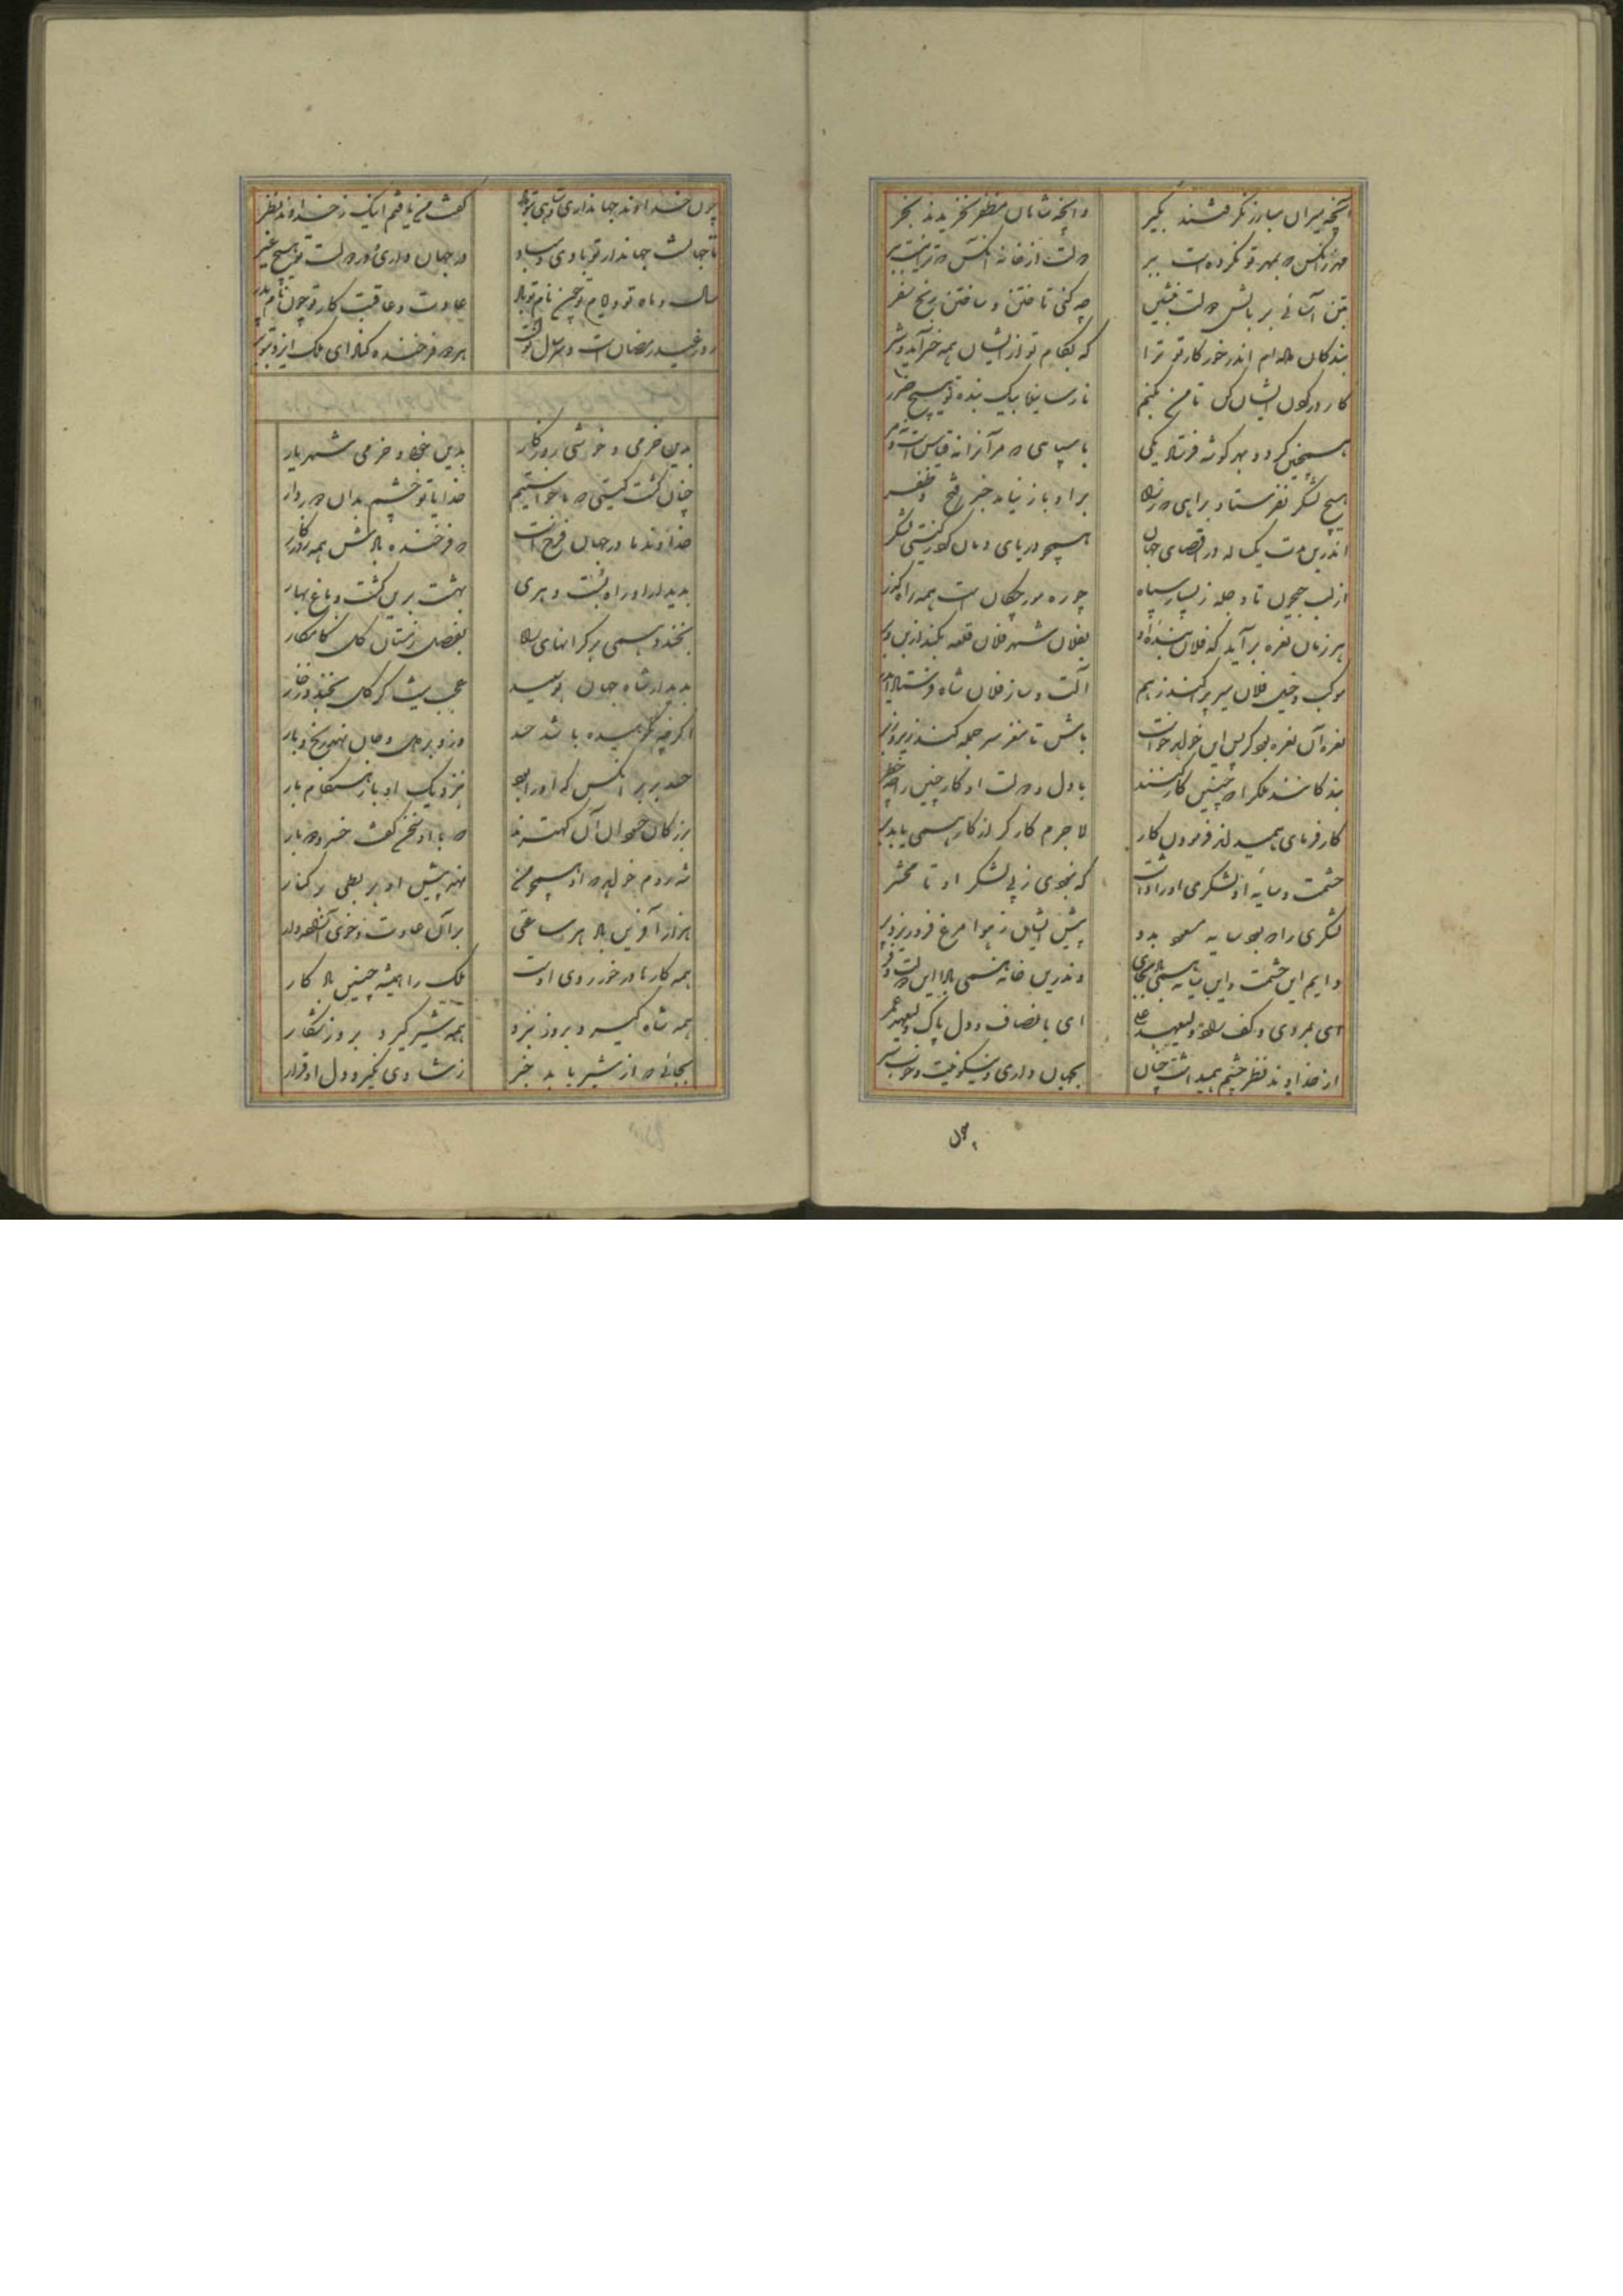 آنچه میران مبارز نگرفتند بگیر
وانچه شاهان مظفر نخریدند بخر
مهر زانکس که بمهر تو نکرده است ببر
دولت از خانه آنکس که ترا نیست ببر
بتن آسانی بر بالش دولت بنشین
چه کنی تاختن و ساختن رنج سفر
بندگان داری اندر خور کار تو ترا
که بکام تو از ایشان همه خیر آید و شر
کار در گردن ایشان کن تا من بکنم
نارسانیده بیک بنده تو هیچ ضرر
همچنین کرد و بهر گوشه فرستاد یکی
با سپاهی که مر آنرا نه قیاس است و نه مر
هیچ لشکر نفرستاد براهی که نه زان
بر او باز نیامد خبر فتح و ظفر
اندرین مدت یکساله در اقصای جهان
همچو دریای دمان کرد ز کشتی لشکر
از لب جیحون تا دجله ز بسیار سپاه
چو ره مورچگان است همه راهگذر
هر زمان نعره برآید که فلان بنده شاه
بفلان شهر فلان قلعه بکند از بن و بر
موکب و خیل فلان میر پراکند ز هم
آلت و ساز فلان شاه فرستاد ایدر
نعره آن نعره بود کز پس این خواهد خواست
باش تا مغز سر حمله کنند زیر و زبر
بندگانند ملک را که چنین کار کنند
با دل و دولت او کار چنین را چه خطر
کار فرمای همی داند فرمودن کار
لاجرم کارگر از کار همی یابد بر
حشمت و سایه او لشکری او را داشت
که نجوی ز پی لشکر او تا محشر
لشکری را که بود سایه مسعود بدو
پیش ایشان ز هوا مرغ فرو ریزد پر
دایم این حشمت و این سایه همی باد بجای
وندرین خانه همی باد این دولت و فر
ای بمردی و کف راد ولیعهد علی
ای بانصاف و دل پاک ولیعهد عمر
از خداوند نظر چشم همیداشت جهان
بجهانداری و نیکونیت و خوب سیر
چون
چون خداوند جهانداری و شاهی بتو داد
گفت من یافتم اینک ز خداوند نظر
تا جهانست جهاندار تو بادی و مباد
در جهانداری و در دولت تو هیچ غیر
سال و ماه تو و ایام تو چون نام تو باد
عادت و عاقبت کار تو چون نام پدر
روز عید رمضان است و سر سال نو است
هر دو فرخنده کناد ای ملک ایزد بتو بر
بدین خرمی و خوشی روزگار
بدین خوبی و خرمی شهریار
چنان گشت گیتی که ما خواستیم
خدایا تو چشم بدان دور دار
خداوند ما در جهان فرخ است
که فرخنده بادش همه روزگار
بدیدار او راه بست و هری
بهشت برین گشت و باغ بهار
بخندد همی بر کرانهای راه
بفصل زمستان گل کامکار
بدیدار شاه جهان بوسعید
عجب نیست گر گل بخندد ز خار
اگر چه نکوهیده باشد حسد
وزو بر دل و جان نهد رنج و بار
حسد بر بر آنکس که او را بود
بنزدیک او باز هنگام بار
بزرگان خواهان آن کهترند
که با او سخن گفت خسرو دو بار
شه روم خواهد که او همچو من
نهد پیش او بربطی بر کنار
هزار آفرین باد هر ساعتی
بر آن عادت و خوی آن شهریار
همه کارها در خور روی اوست
ملک را همیشه چنین باد کار
همه شاه گیرد بروز نبرد
همه شیر گیرد بروز شکار
بجائی که از شیر یابد خبر
ز شادی نگیرد دل او قرار